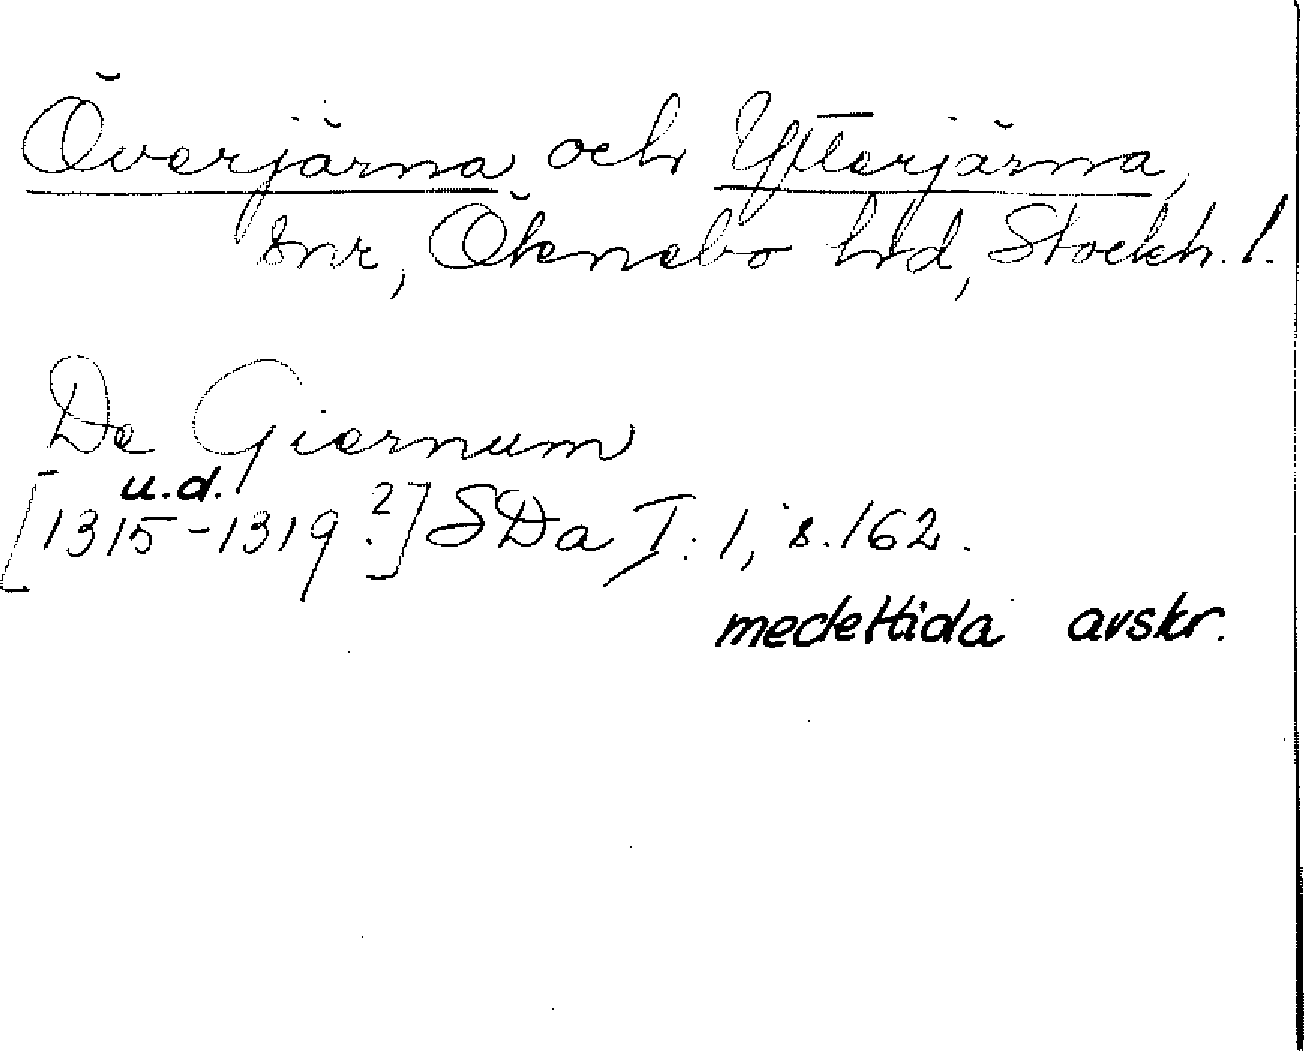 Överjärna och Ytterjärna,
snr, Öknebo hd, Stockh. l.
De Giernum
u.d.
[1315-1319?] SDa I: 1, s. 162.
medeltida avskr.